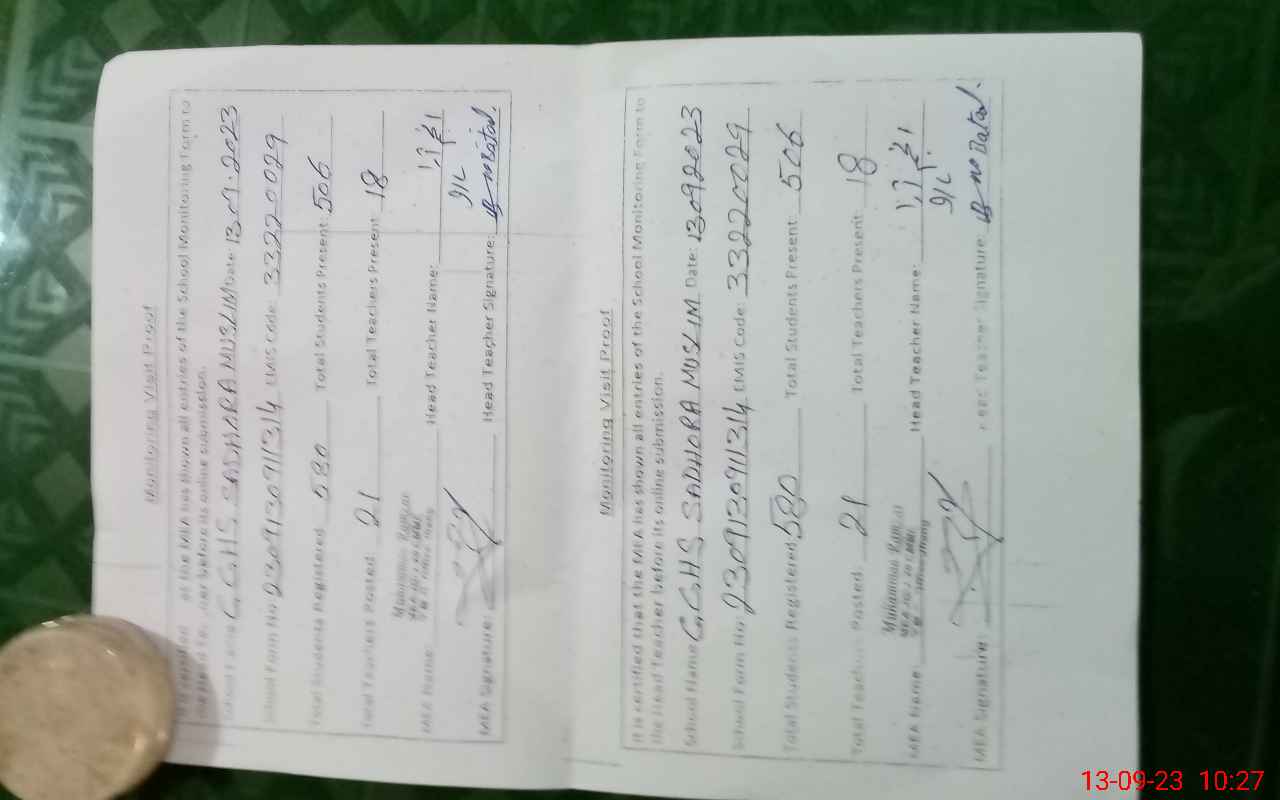 Monitoring Visit Proof
at the MEA has shown all entries of the School Monitoring Form to
before its online submission.
G.G.H.S. SADHORA MUSLIM Date: 13.09.2023
School Form No: 2309130911314 EMIS Code: 33220029
Total Students Registered 580 Total Students Present: 506
Total Teachers Posted: 21 Total Teachers Present: 18
MEA Name: Muhammad Head Teacher Name:
MEA Signature: Head Teacher Signature:
Monitoring Visit Proof
It is certified that the MEA has shown all entries of the School Monitoring Form to
the Head Teacher before its online submission.
School Name G.G.H.S. SADHORA MUSLIM Date: 13092023
School Form No: 2309130911314 EMIS Code: 33220029
Total Students Registered: 580 Total Students Present: 506
Total Teachers Posted: 21 Total Teachers Present: 18
MEA Name: Muhammad Head Teacher Name:
MEA Signature: Head Teacher Signature:
13-09-23 10:27